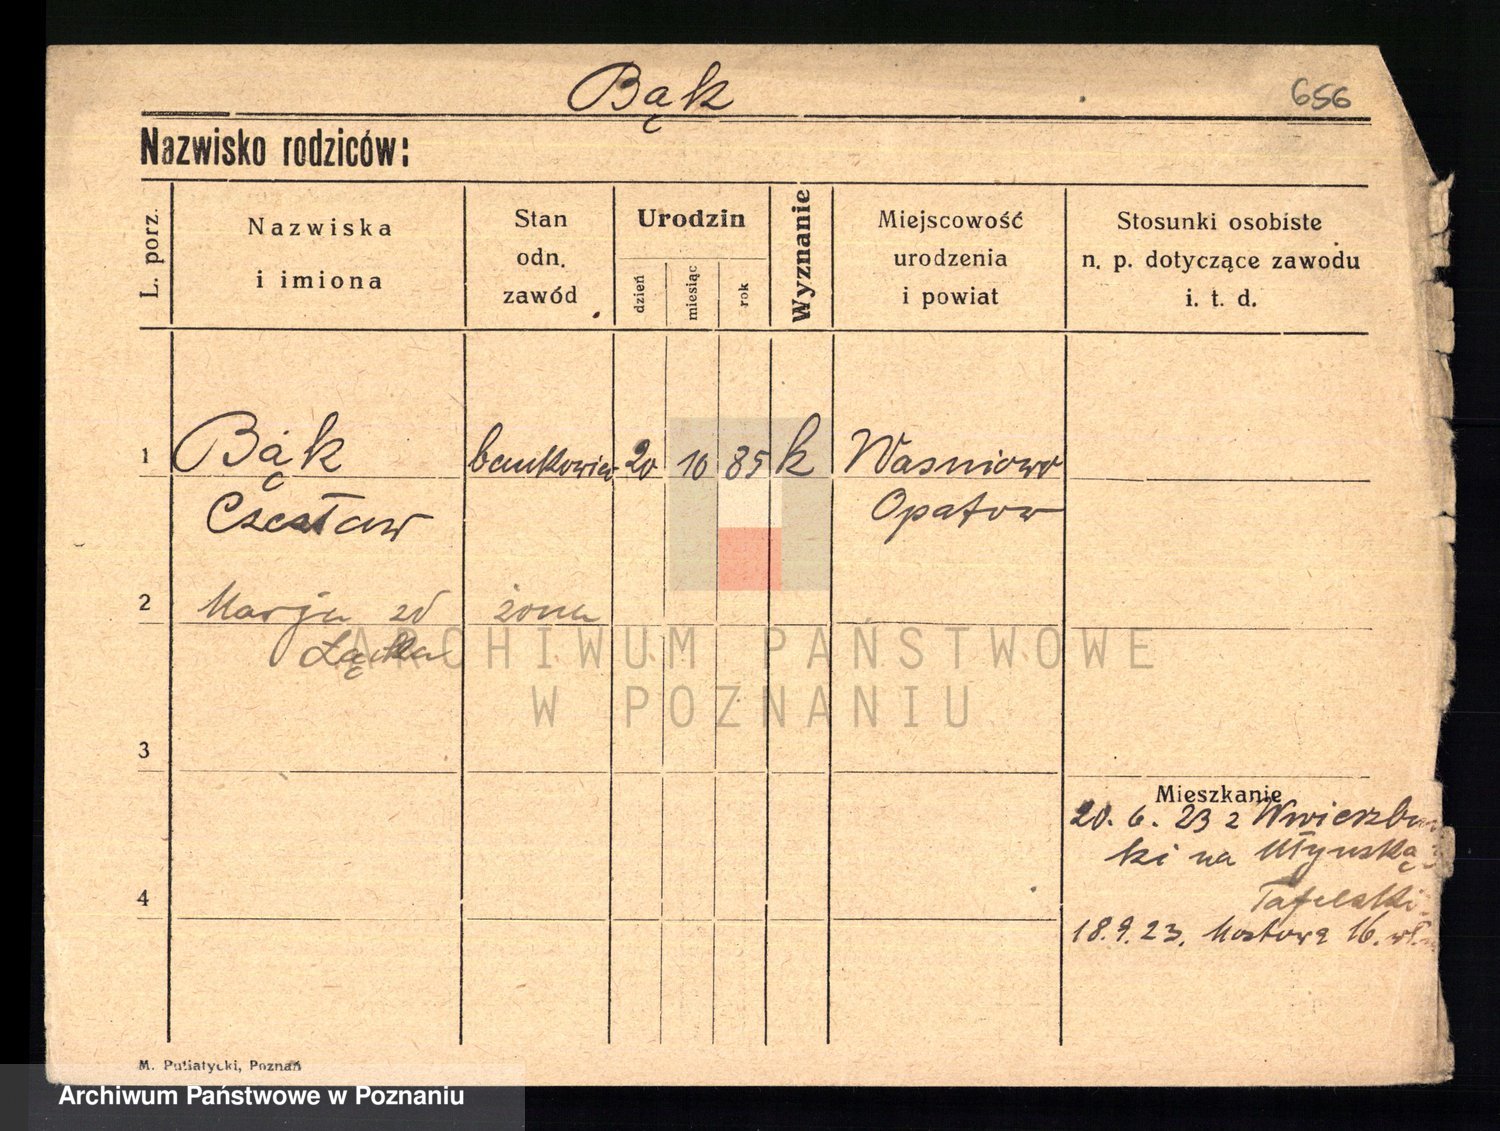 Bąk
656
Nazwisko rodziców:
L. porz.
Nazwiska
i imiona
Stan
odn.
zawód
Urodzin
dzień
miesiąc
rok
Wyznanie
Miejscowość
urodzenia
i powiat
Stosunki osobiste
n. p. dotyczące zawodu
i. t. d.
1 Bąk bankowiec 20 10 85 k Wasniowo
Czesław Opatow
2 Marja zd żona
3
Mieszkanie
20. 6. 23 z
ki na Młyńską
4
18.9.23. Mostowa 16.
ARCHIWUM PAŃSTWOWE
W POZNANIU
M. Putiatycki, Poznań
Archiwum Państwowe w Poznaniu